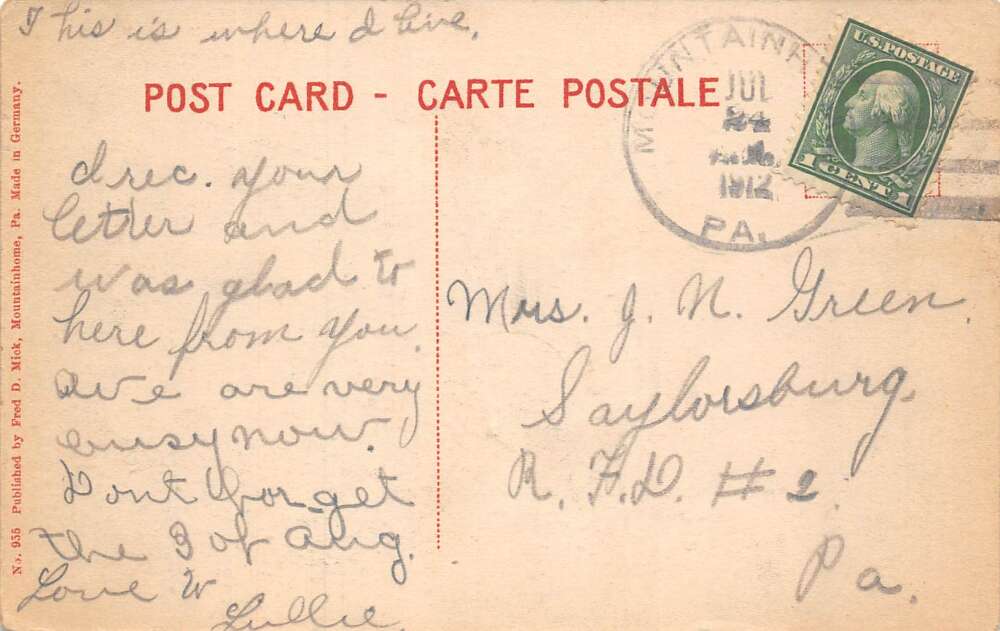 This is where I live.
POST CARD - CARTE POSTALE
No. 935 Published by Fred D. Mick, Mountainhome, Pa. Made in Germany.
MOUNTAINH
JUL
24
1912
PA.
U.S. POSTAGE
1 CENT 1
I rec. your
letter and
was glad to
here from you.
We are very
busy now.
Dont forget
the 3 of Aug.
Love to
Lullie.
Mrs. J. N. Green.
Saylorsburg.
R.F.D. #2
Pa.